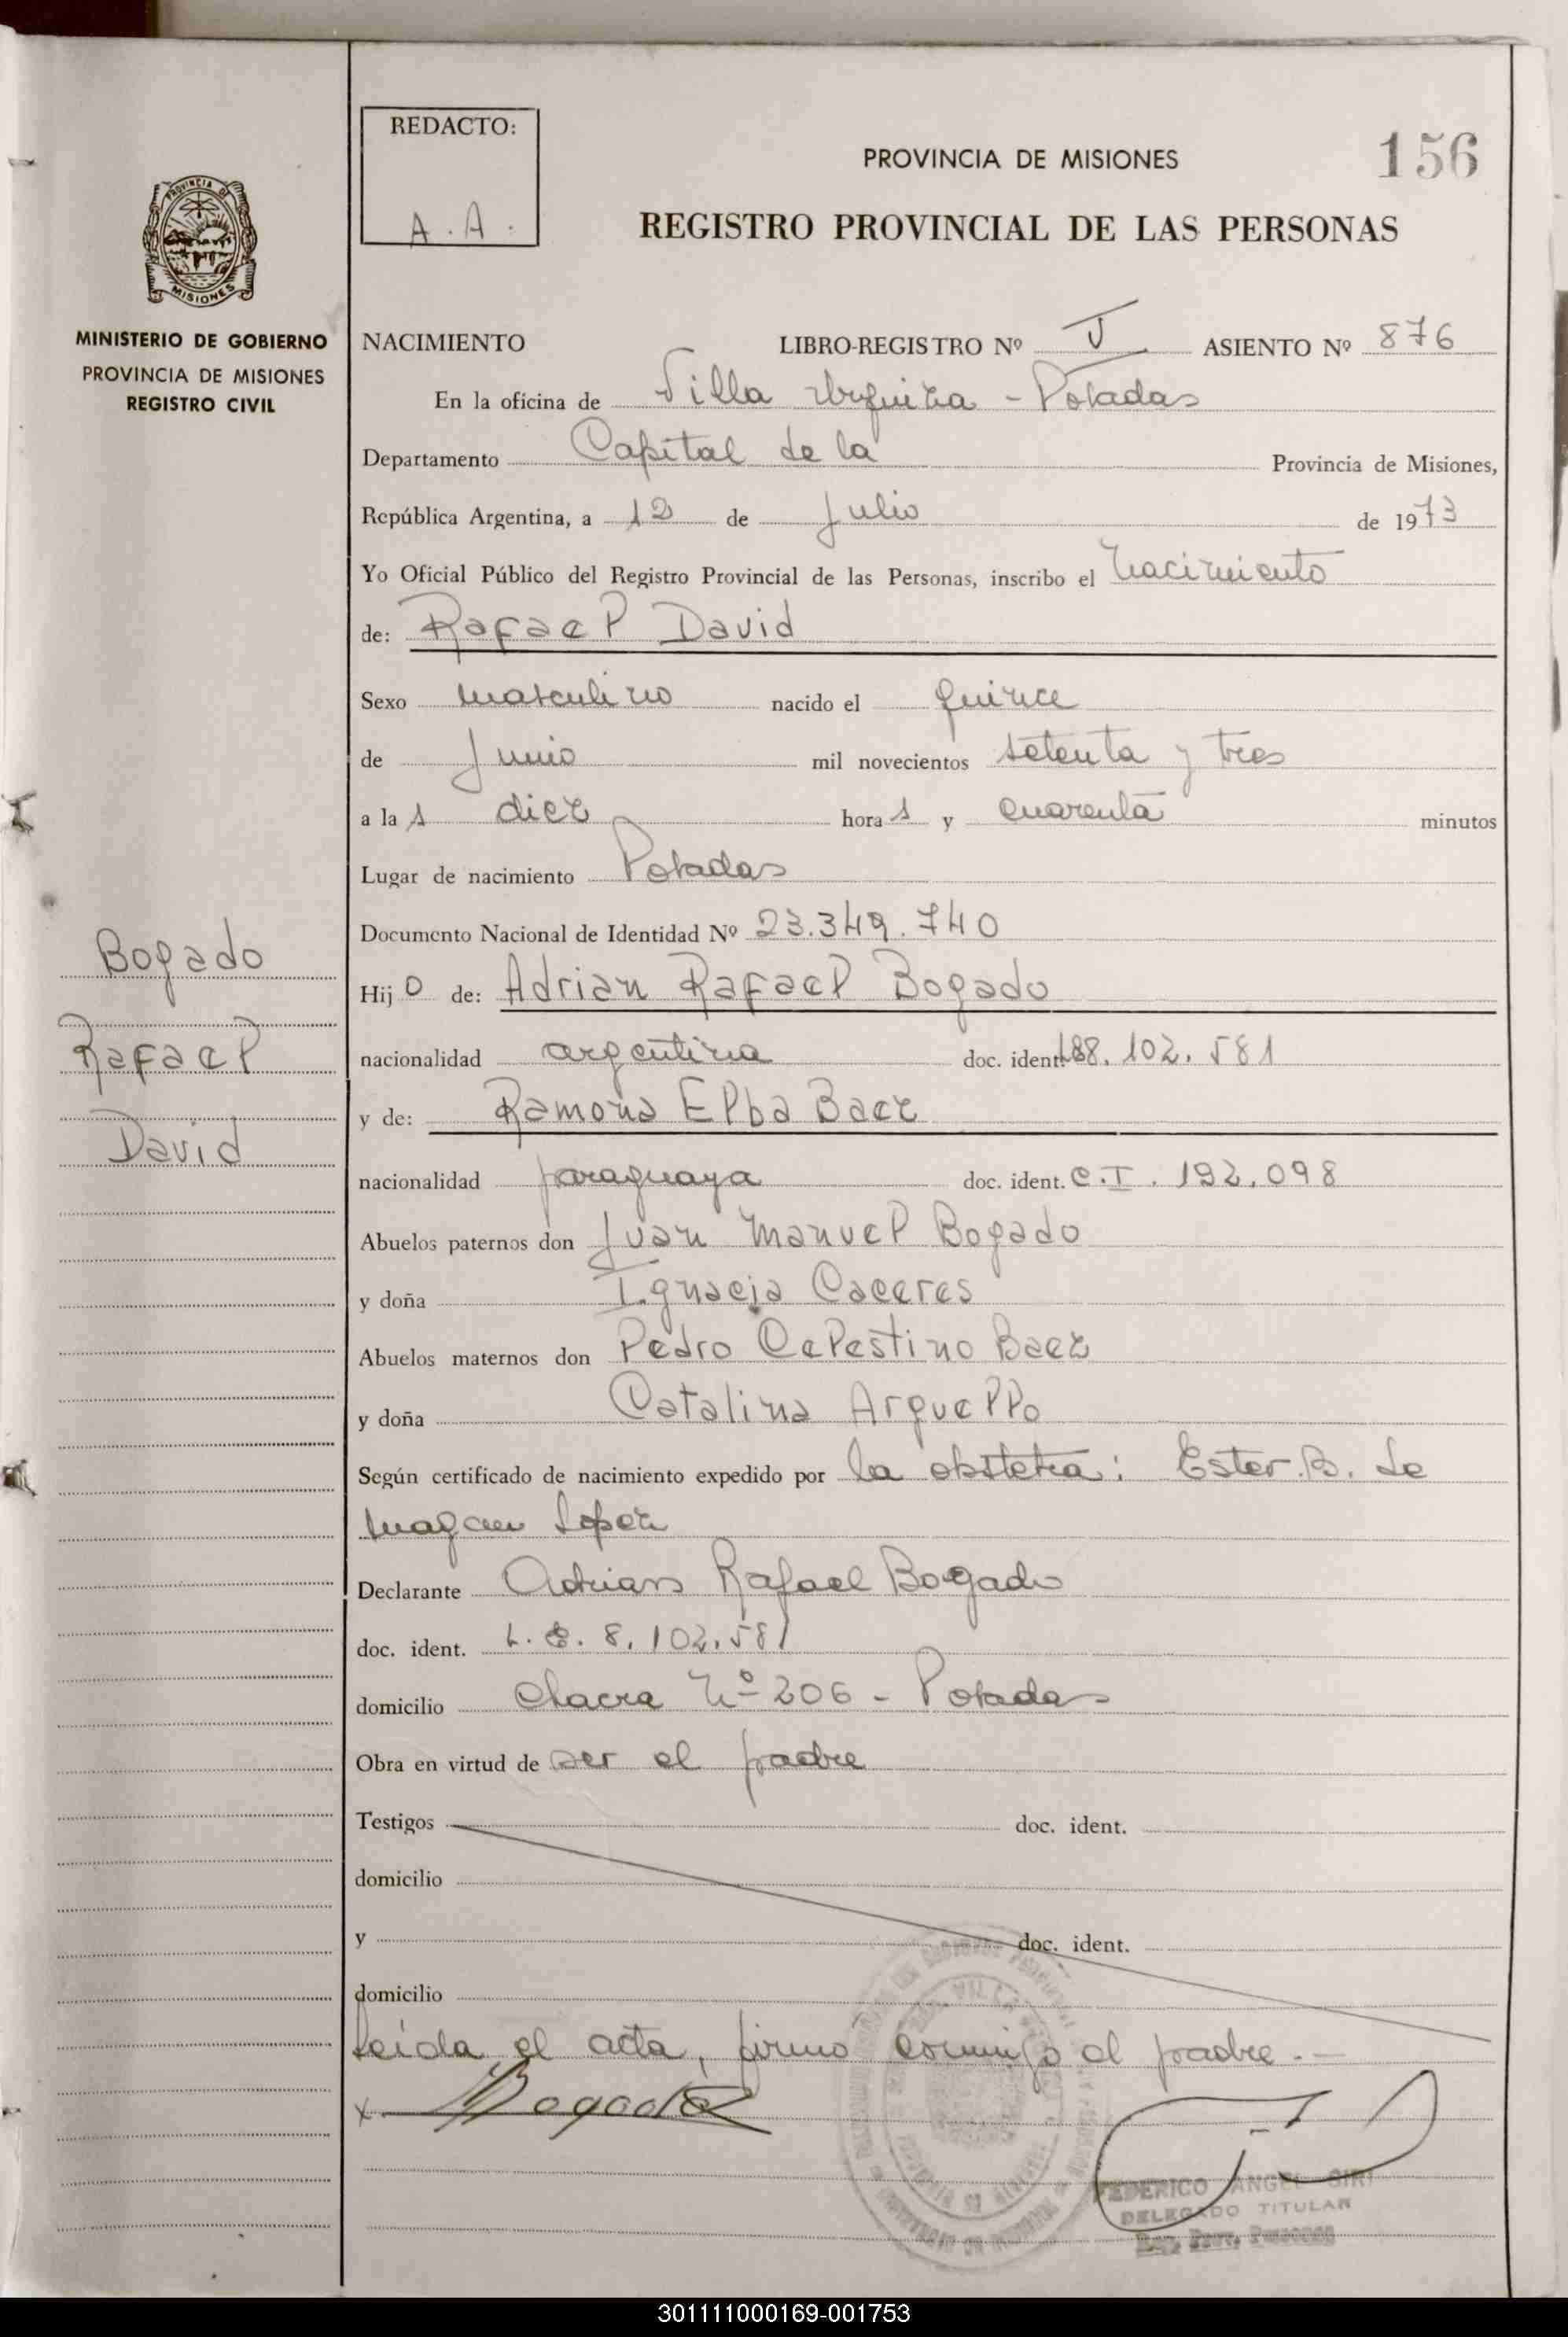 REDACTO:
A. A.
PROVINCIA DE MISIONES
156
REGISTRO PROVINCIAL DE LAS PERSONAS
PROVINCIA DE
MISIONES
MINISTERIO DE GOBIERNO
PROVINCIA DE MISIONES
REGISTRO CIVIL
NACIMIENTO LIBRO-REGISTRO Nº ASIENTO Nº 876
En la oficina de Villa Urquiza - Posadas
Departamento Capital de la Provincia de Misiones,
República Argentina, a 12 de Julio de 1973
Yo Oficial Público del Registro Provincial de las Personas, inscribo el nacimiento
de: Rafael David
Sexo masculino nacido el quince
de Junio mil novecientos setenta y tres
a la s diez hora s y cuarenta minutos
Lugar de nacimiento Posadas
Documento Nacional de Identidad Nº 23.349.740
Bogado
Rafael
David
Hij o de: Adrian Rafael Bogado
nacionalidad argentina doc. ident. 8.102.581
y de: Ramona Elba Baez
nacionalidad paraguaya doc. ident. C.I. 192.098
Abuelos paternos don Juan Manuel Bogado
y doña Ignacia Caceres
Abuelos maternos don Pedro Celestino Baez
y doña Catalina Arguello
Según certificado de nacimiento expedido por la obstetra: Ester B. de
Lopez
Declarante Adrian Rafael Bogado
doc. ident. L.E. 8.102.581
domicilio Chacra Nº 206 - Posadas
Obra en virtud de ser el padre
Testigos doc. ident.
domicilio
y doc. ident.
domicilio
Leida el acta, firmó conmigo el padre.-
x Bogado
FEDERICO ANGEL GIRI
DELEGADO TITULAR
Reg. Prov. Personas
301111000169-001753